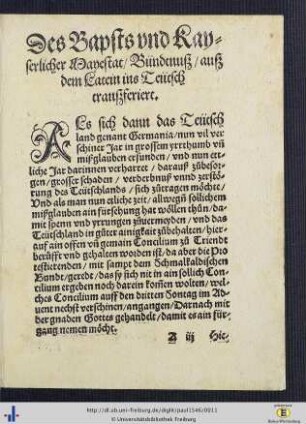 Des Bapsts vnd Kay-
serlicher Mayestat / Bündtnuß / auß
dem Latein ins Teütsch
transsferiert.
ALs sich dann das Teütsch
land genant Germania / nun vil ver
schiner Jar in grossem yrrthumb vn̄
mißglauben erfunden / vnd nun ett-
liche Jar darinnen verharret / darauß zůbesor-
gen / grosser schaden / verderbnuß vnnd zerstö-
rung des Teütschlands / sich zůtragen möchte /
Vnd als man nun etliche zeit / allwegn̄ sollichem
mißglauben ain fürsehung hat wöllen thůn / da-
mit spoten vnd yrrungen zůuermeyden / vnd das
Teütschland in gůter ainigkait zůbehalten / hier-
auf ain offen vn̄ gemain Concilium zů Triendt
berůfft vnd gehalten worden ist / da aber die Pro
testierenden / mit sampt dem Schmalkaldischen
Bundt / geredt / das sy sich nit in ain sollich Con-
cilium ergeben noch darein kom̄en wolten / wel-
ches Concilium auff den dritten Sontag im Ad-
uent nechst verschinen / angangen / Darnach mit
der gnaden Gottes gehandelt / damit es ain für-
gang nemen möcht.
A iij Hie-
http://dl.ub.uni-freiburg.de/diglit/paul1546/0011
© Universitätsbibliothek Freiburg